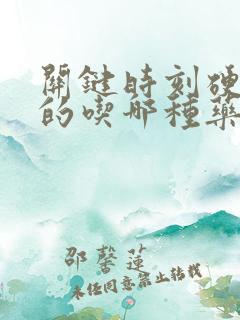 關鍵時刻硬
的喫哪種藥
邵馨蓮
未经同意禁止转载